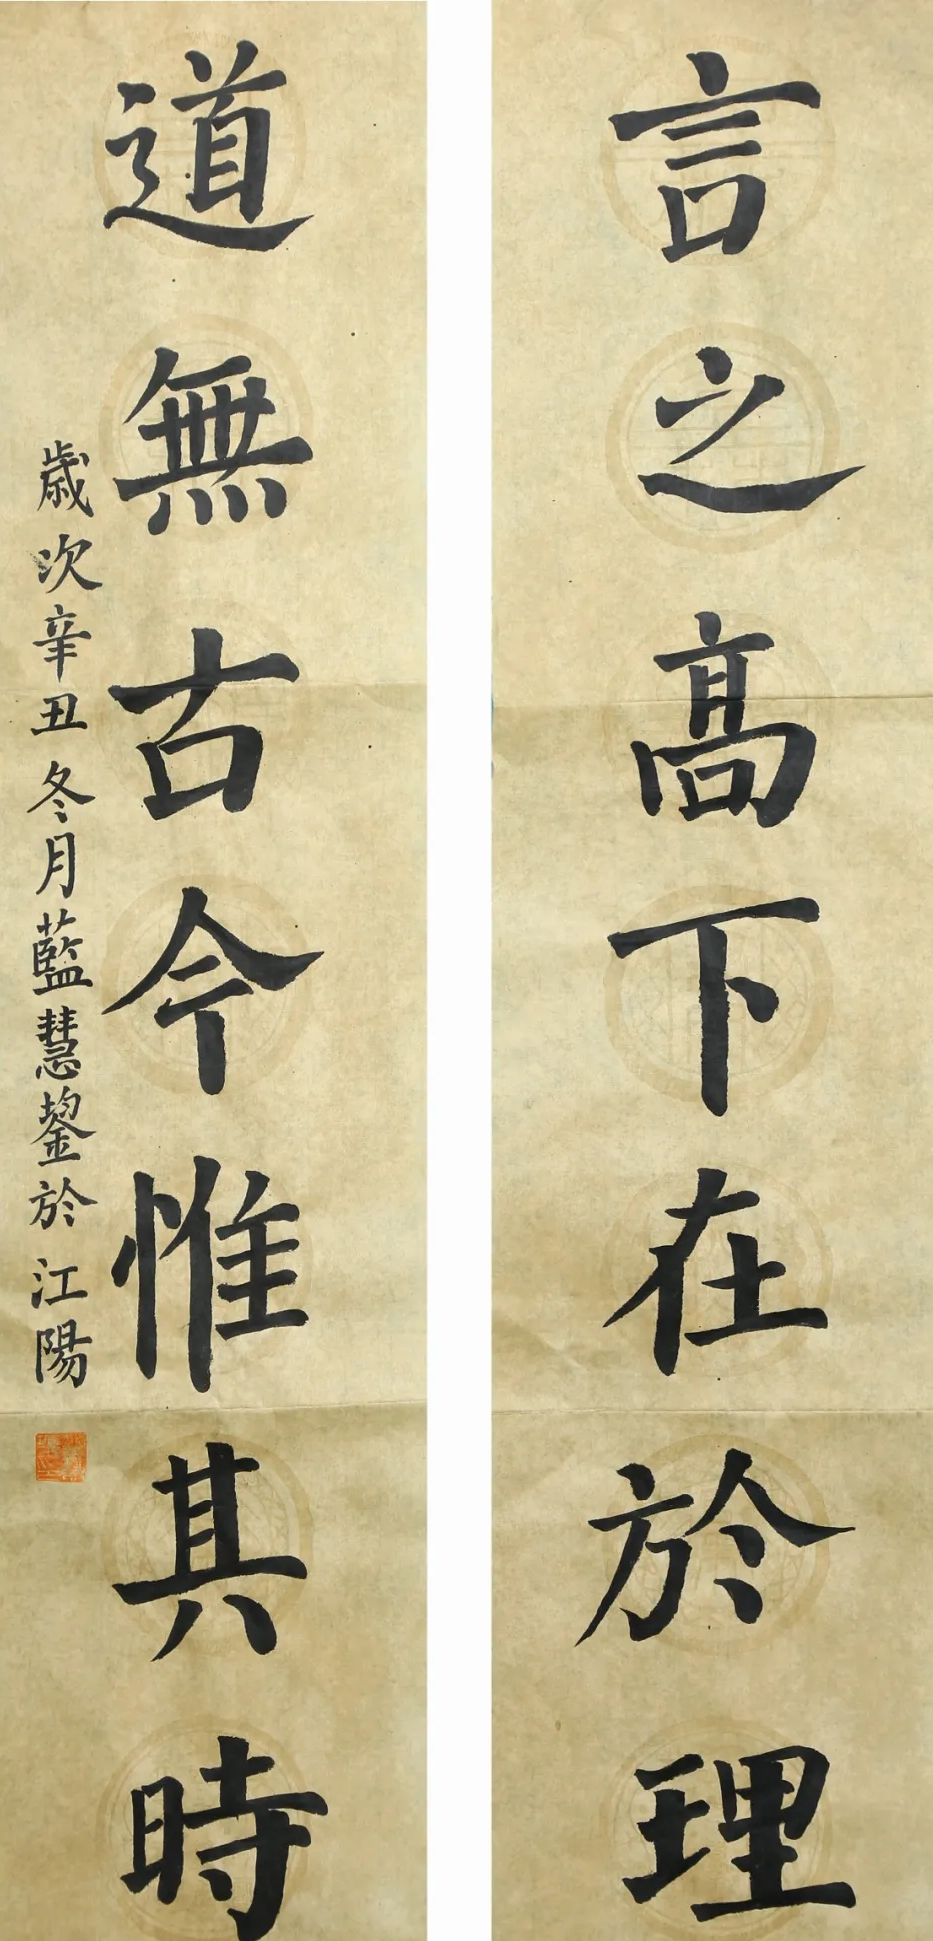 言之高下在於理
道無古今惟其時
歲次辛丑冬月藍慧鋆於江陽